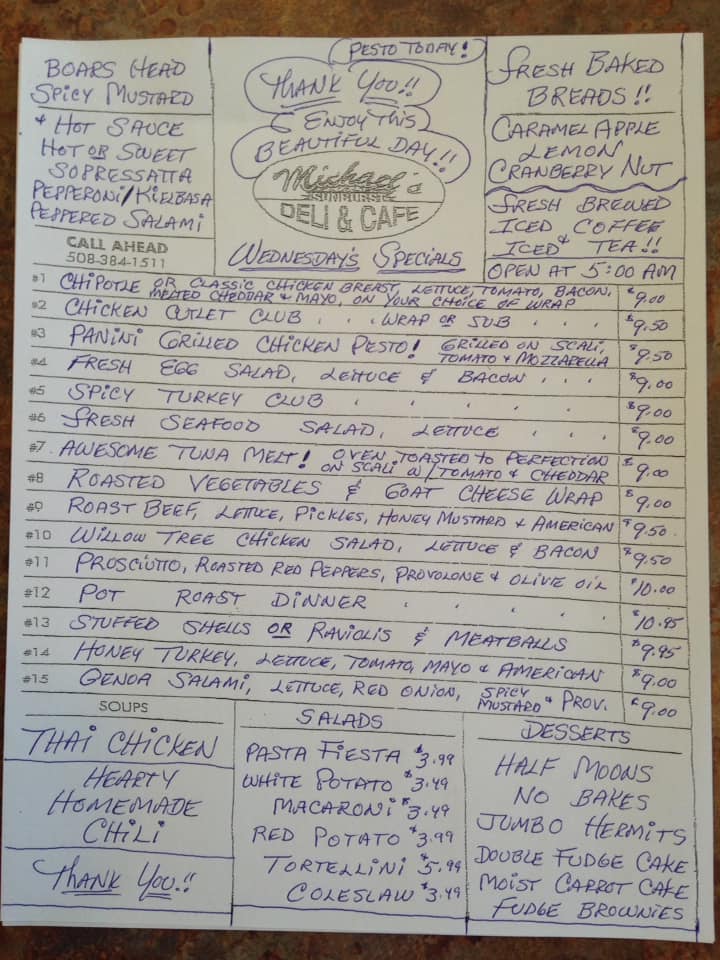 BOARS HEAD
SPICY MUSTARD
& HOT SAUCE
HOT OR SWEET
SOPRESSATTA
PEPPERONI/KIELBASA
PEPPERED SALAMI
CALL AHEAD
508-384-1511
PESTO TODAY!
THANK YOU!!
ENJOY THIS
BEAUTIFUL DAY!!
Michael's
DELI & CAFE
WEDNESDAY'S SPECIALS
FRESH BAKED
BREADS!!
CARAMEL APPLE
LEMON
CRANBERRY NUT
FRESH BREWED
ICED COFFEE
&
ICED TEA!!
OPEN AT 5:00 AM
#1 CHIPOTLE OR CLASSIC CHICKEN BREAST, LETTUCE, TOMATO, BACON,
MELTED CHEDDAR & MAYO, ON YOUR CHOICE OF WRAP $9.00
#2 CHICKEN CUTLET CLUB . . . WRAP OR SUB . . . $9.50
#3 PANINI GRILLED CHICKEN PESTO! GRILLED ON SCALI,
TOMATO & MOZZARELLA $9.50
#4 FRESH EGG SALAD, LETTUCE & BACON . . . $9.00
#5 SPICY TURKEY CLUB . . . . . $9.00
#6 FRESH SEAFOOD SALAD, LETTUCE . . . $9.00
#7 AWESOME TUNA MELT! OVEN TOASTED TO PERFECTION
ON SCALI W/TOMATO & CHEDDAR $9.00
#8 ROASTED VEGETABLES & GOAT CHEESE WRAP $9.00
#9 ROAST BEEF, LETTUCE, PICKLES, HONEY MUSTARD & AMERICAN $9.50
#10 WILLOW TREE CHICKEN SALAD, LETTUCE & BACON $9.50
#11 PROSCIUTTO, ROASTED RED PEPPERS, PROVOLONE & OLIVE OIL $10.00
#12 POT ROAST DINNER . . . . . $10.95
#13 STUFFED SHELLS OR RAVIOLIS & MEATBALLS $9.95
#14 HONEY TURKEY, LETTUCE, TOMATO, MAYO & AMERICAN $9.00
#15 GENOA SALAMI, LETTUCE, RED ONION, SPICY
MUSTARD & PROV. $9.00
SOUPS
THAI CHICKEN
HEARTY
HOMEMADE
CHILI
THANK YOU!!
SALADS
PASTA FIESTA $3.99
WHITE POTATO $3.49
MACARONI $3.49
RED POTATO $3.99
TORTELLINI $5.99
COLESLAW $3.49
DESSERTS
HALF MOONS
NO BAKES
JUMBO HERMITS
DOUBLE FUDGE CAKE
MOIST CARROT CAKE
FUDGE BROWNIES